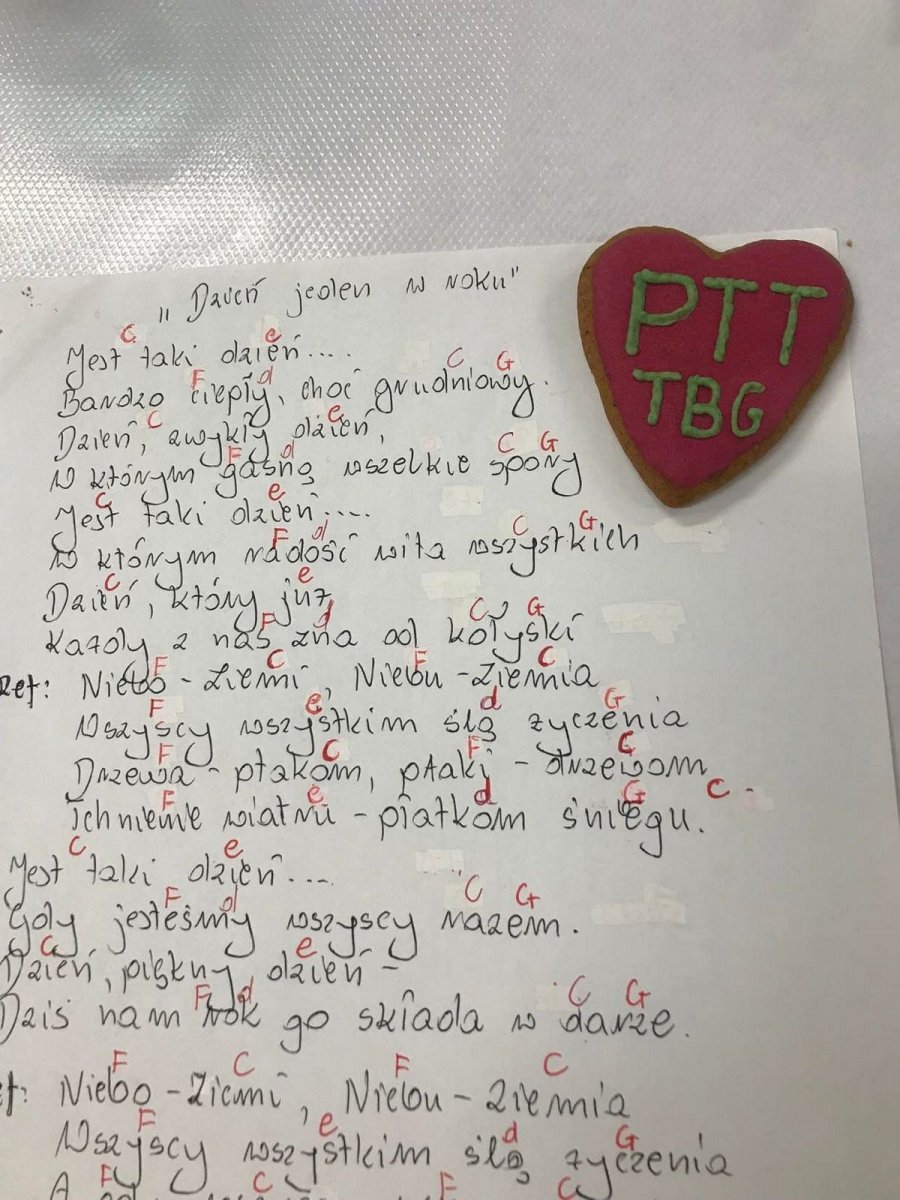 „Dzień jeden w roku"
PTT
TBG
C e
Jest taki dzień....
F d C G
Bardzo ciepły, choć grudniowy.
C e
Dzień, zwykły dzień,
F d C G
W którym gasną wszelkie spory
C e
Jest taki dzień....
F d C G
W którym radość wita wszystkich
C e
Dzień, który już
F d C G
Każdy z nas zna od kołyski
F C F C
Ref: Niebo - Ziemi, Niebu - Ziemia
F e d G
Wszyscy wszystkim ślą życzenia
F C F C
Drzewa - ptakom, ptaki - drzewom
F e d G C.
Tchnienie wiatru - płatkom śniegu.
C e
Jest taki dzień...
F d C G
Gdy jesteśmy wszyscy razem.
C e
Dzień, piękny dzień -
F d C G
Dziś nam rok go składa w darze.
F C F C
ef: Niebo - Ziemi, Niebu - Ziemia
F e d G
Wszyscy wszystkim ślą życzenia
F C F C
A